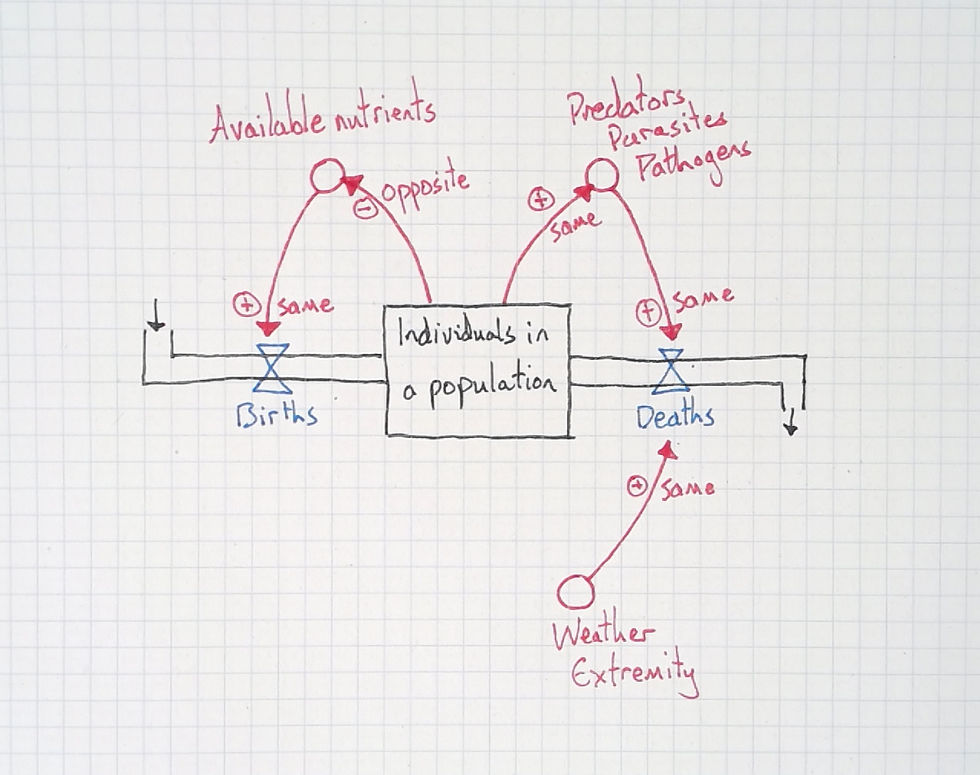 Available nutrients
Predators
Parasites
Pathogens
⊖ opposite
⊕
same
⊕ same
⊕ same
Individuals in
a population
Births
Deaths
⊕ same
Weather
Extremity